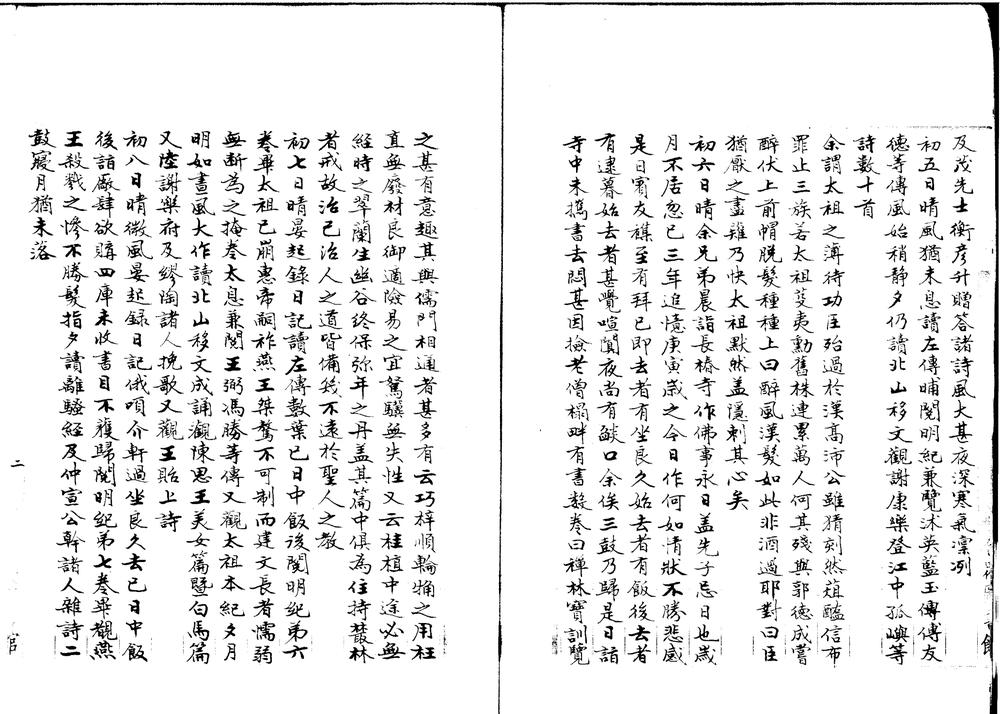 及茂先士衡彥升贈答諸詩風大甚夜深寒氣凜冽
初五日晴風猶未息讀左傳晡閱明紀兼覽沐英藍玉傳傅友
德等傳風始稍靜夕仍讀北山移文觀謝康樂登江中孤嶼等
詩數十首
余謂太祖之薄待功臣殆過於漢高沛公雖猜刻然葅醢信布
罪止三族若太祖芟夷勳舊株連累萬人何其殘與郭德成嘗
醉伏上前帽脫髮種種上曰醉風漢髮如此非酒過耶對曰臣
猶厭之盡薙乃快太祖默然盖隱刺其心矣
初六日晴余兄弟晨詣長椿寺作佛事永日盖先子忌日也歲
月不居忽已三年追憶庚寅歲之今日作何如情狀不勝悲感
是日賓友襍至有拜已即去者有坐良久始去者有飯後去者
有逮暮始去者甚覺喧闐夜尚有燄口余俟三鼓乃歸是日詣
寺中未攜書去悶甚因撿老僧榻畔有書數卷曰禪林寶訓覽
之甚有意趣其與儒門相通者甚多有云巧梓順輪桷之用枉
直無廢材良御適險易之宜駑驥無失性又云桂植中途必無
經時之翠蘭生幽谷終保弥年之丹盖其篇中俱為住持叢林
者戒故治己治人之道皆備幾不遠於聖人之教
初七日晴晏起錄日記讀左傳數葉已日中飯後閱明紀第六
卷畢太祖已崩惠帝嗣祚燕王桀驁不可制而建文長者懦弱
無断為之掩卷太息兼閱王弼馮勝等傳又觀太祖本紀夕月
明如晝風大作讀北山移文成誦觀陳思王美女篇暨白馬篇
又陸謝樂府及繆陶諸人挽歌又觀王貽上詩
初八日晴微風晏起録日記俄頃介軒過坐良久去已日中飯
後詣廠肆欲購四庫未收書目不獲歸閱明紀第七卷畢觀燕
王殺戮之慘不勝髮指夕讀離騷經及仲宣公幹諸人雜詩二
鼓寢月猶未落
二